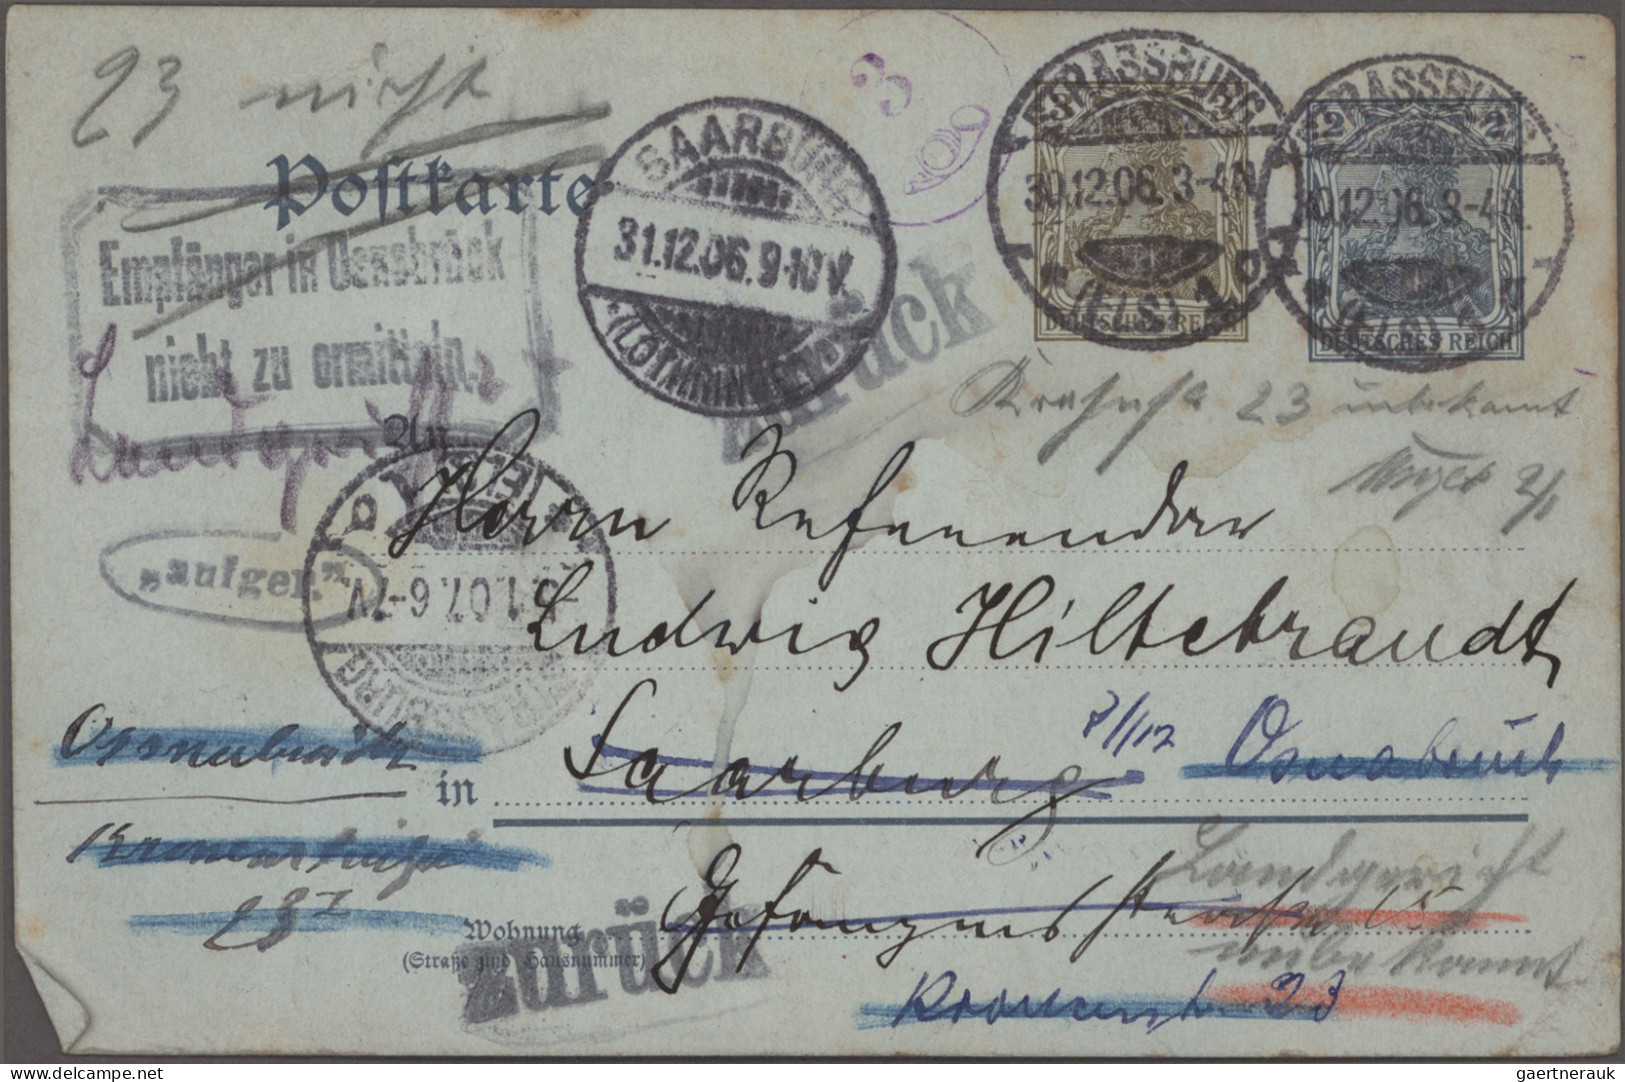 23 nicht
Postkarte
3
STRASSBURG
30.12.06. 3-4N
(ELS) 1
DEUTSCHES REICH
2 2
STRASSBURG
30.12.06. 3-4N
(ELS) 1
DEUTSCHES REICH
SAARBURG
31.12.06. 9-10 V.
(LOTHRINGEN)
Empfänger in Osnabrück
nicht zu ermitteln.
Zurück
Landgericht
23 unbekannt
2/1
An
Herrn Referendar
„aufgef.“
1.07. 6-7V
STRASSBURG
Ludwig Hiltebrandt
Osnabrück
in Saarburg
Osnabrück
23 I
Wohnung
(Straße und Hausnummer)
Gefängnisstrasse
Landgericht
unbekannt
zurück
Kronenstr. 23
gaertnerauk